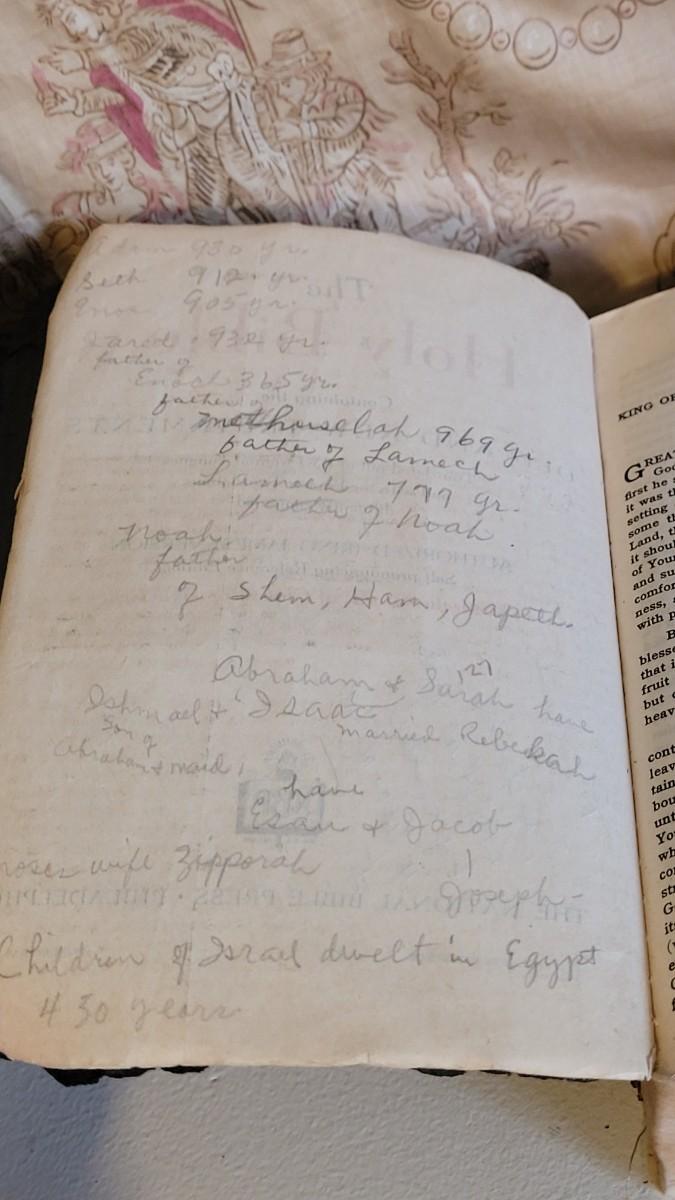 Edam 930 yr.
Seth 912 yr.
Enos 905 yr.
Jared 932 yr.
father of
Enoch 365 yr.
father of
methuselah 969 yr.
father of Lamech
Lamech 777 yr.
father of Noah.
Noah
father
of Shem, Ham, Japeth.
Abraham & Sarah 127 have
Ishmael & Isaac
son of
Abraham & maid,
married Rebekah
have
Esau & Jacob
moses wife Zipporah
Joseph-
Children of Israel dwelt in Egypt
430 years
The
Holy
Containing the
AUTHORIZED
Self-pronouncing
THE NATIONAL BIBLE PRESS · PHILADELPHI
KING OF
GREA
God
first he s
it was th
setting
some th
Land, th
it shoul
of You
and su
comfor
ness, a
with p
B
blesse
that i
fruit
but
heav
cont
leav
tain
bou
unt
You
wh
co
str
G
it